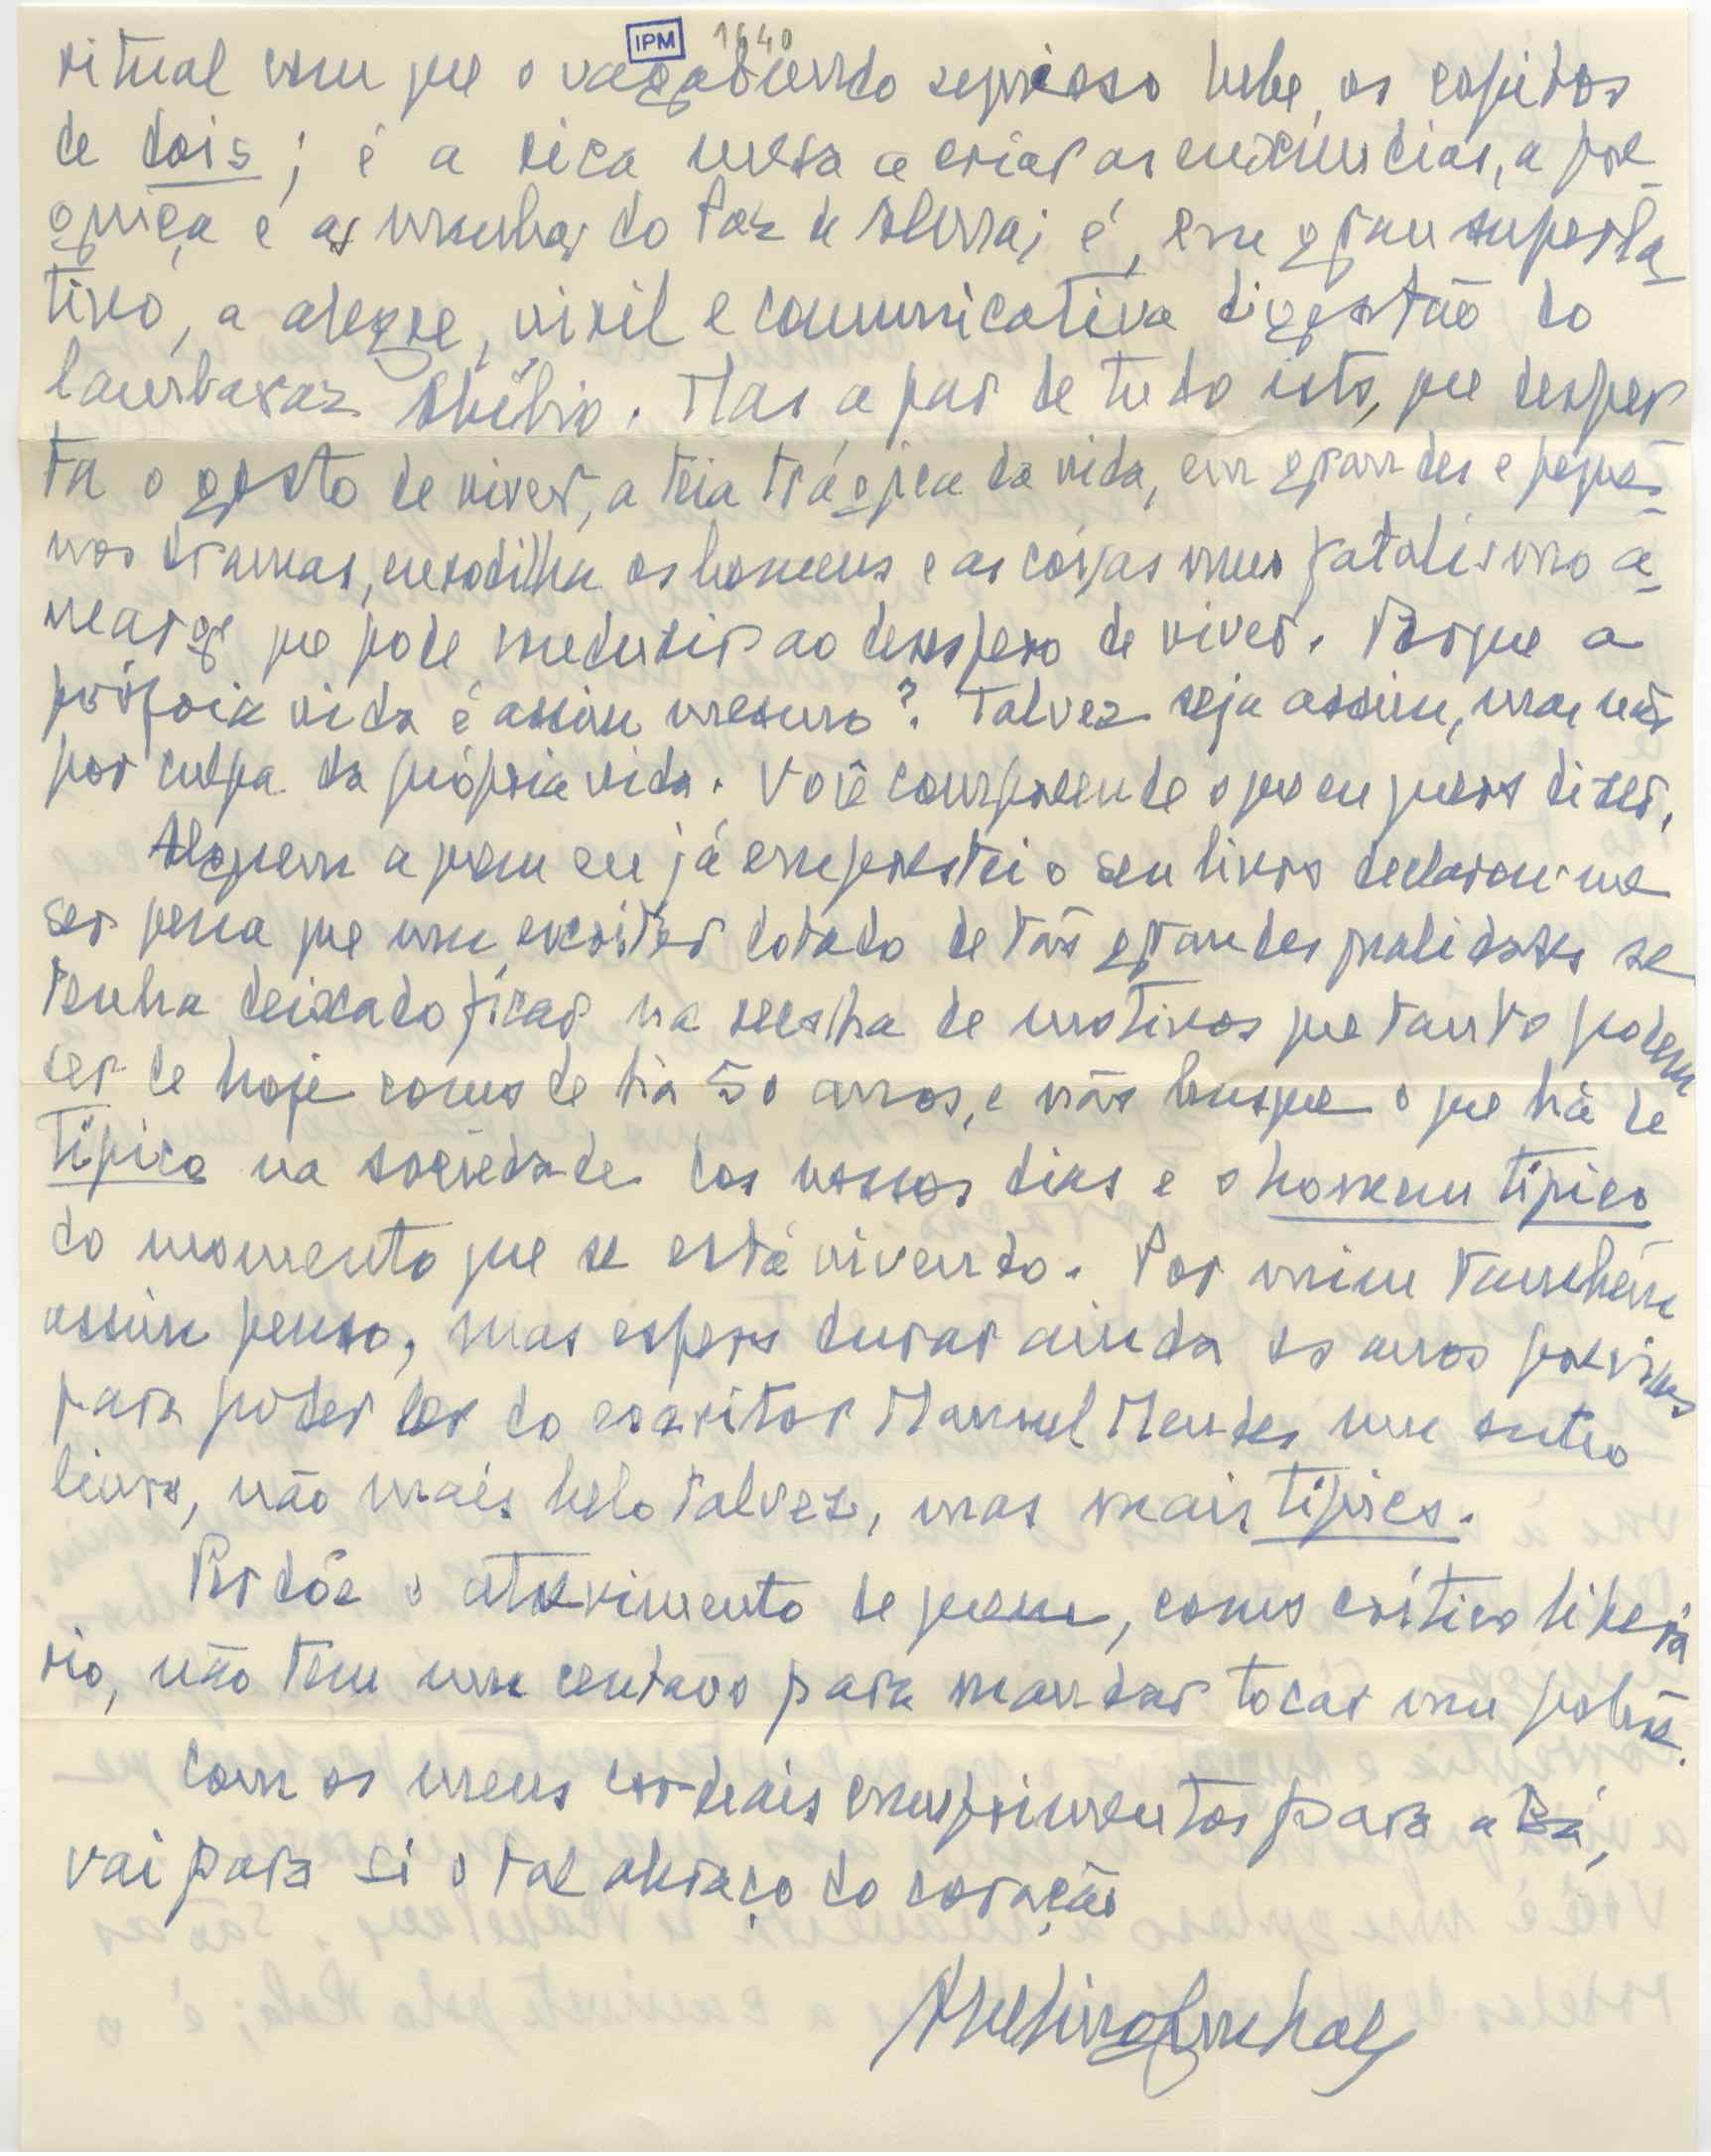 IPM 1640
ritual com que o vagabundo sequioso bebe os copitos
de dois; é a rica mesa a criar as enxúndias, a pre-
guiça e as do Paz de; é, em grau superla-
tivo, a alegre, viril e comunicativa digestão do
lambazaz. Mas a par de tudo isto, que desper
ta o gosto de viver, a teia trágica da vida, em grandes e peque-
nos dramas, enrodilha os homens e as coisas num fatalismo a-
marge que pode induzir ao desespero de viver. Porque a
própria vida é assim mesmo? Talvez seja assim, mas não
por culpa da própria vida. Você compreende o que eu quero dizer.
Alguem a quem eu já emprestei o seu livro declarou-me
ser pena que um escritor dotado de tão grandes qualidades se
tenha deixado ficar na de motivos que tanto podem
ser de hoje como de há 50 anos, e não busque o que há de
típico na sociedade dos nossos dias e o homem típico
do momento que se está vivendo. Por mim também
assim penso, mas espero durar ainda os anos precisos
para poder ler do escritor Manuel Mendes um outro
livro, não mais belo talvez, mas mais típico.
Perdôe o atrevimento de quem, como crítico literá
rio, não tem um centavo para mandar tocar um.
Com os meus cordeais cumprimentos para a Bá,
vai para si o tal abraço do coração
Avelino Cunhal